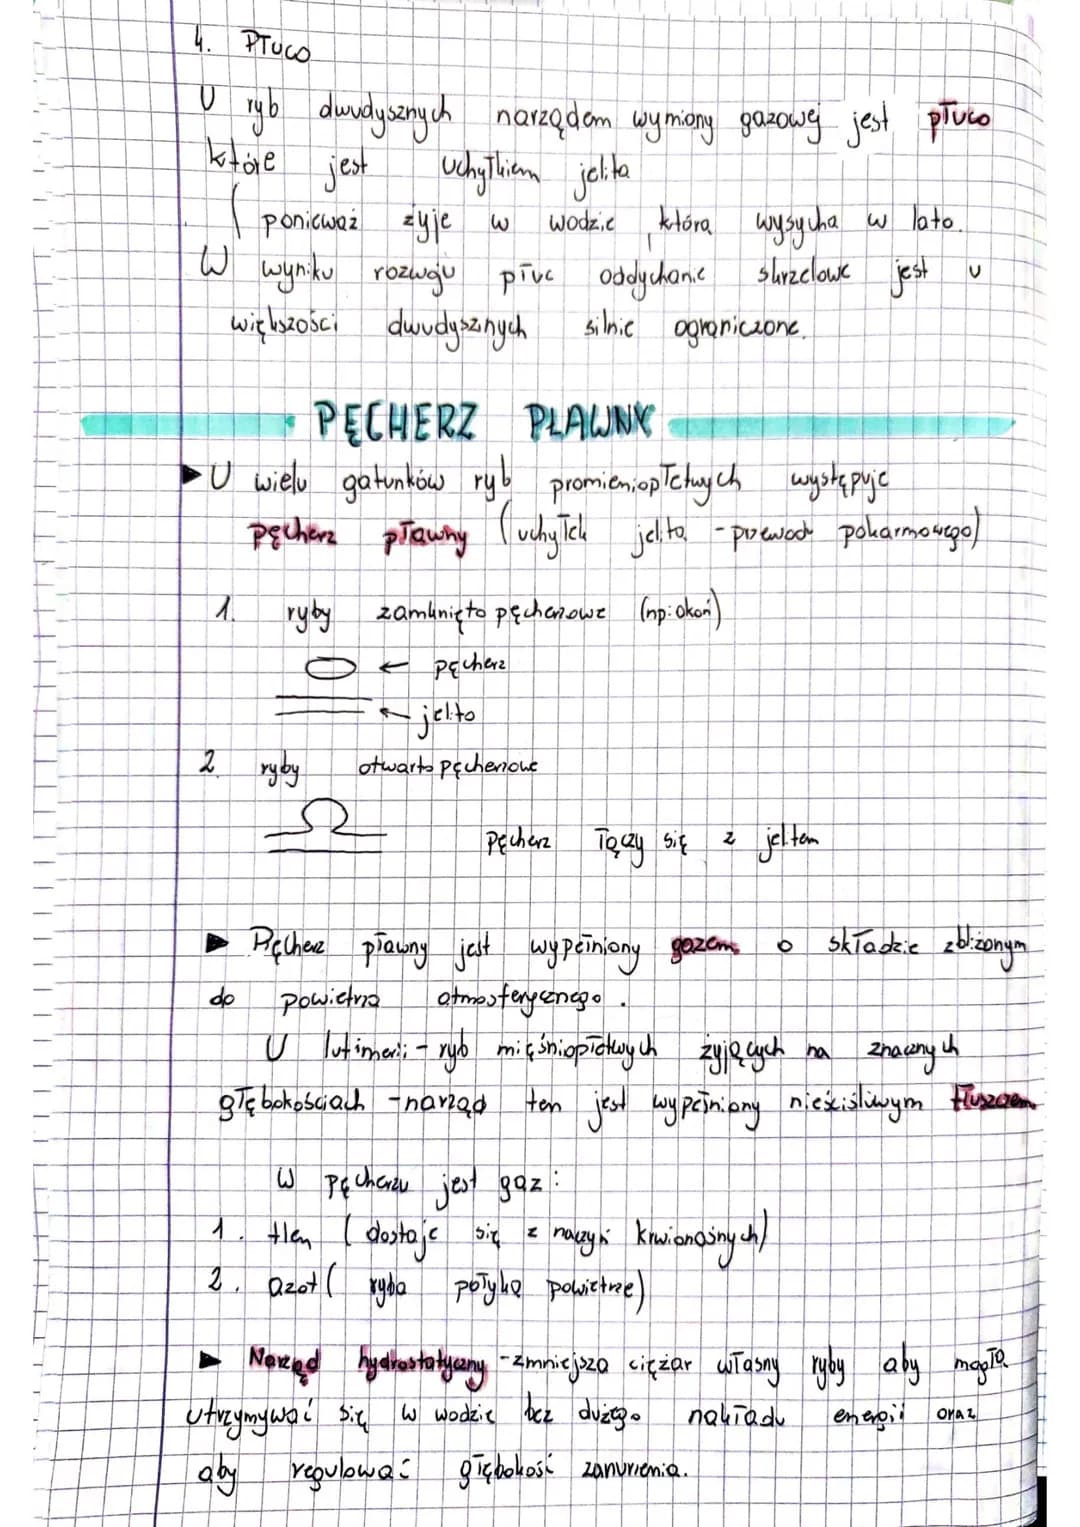 4. Płuco
U ryb dwudysznych narządem wymiany gazowej jest płuco
które jest uchyłkiem jelita
(ponieważ żyje w wodzie, która wysycha w lato.
W wyniku rozwoju płuc oddychanie skrzelowe jest u
większości dwudysznych silnie ograniczone.
PĘCHERZ PŁAWNY
▶ U wielu gatunków ryb promieniopłetwych występuje
pęcherz pławny (uchyłek jelita - przewodu pokarmowego)
1. ryby zamknięto pęcherzowe (np: okoń)
← pęcherz
← jelito
2. ryby otwarto pęcherzowe
pęcherz łączy się z jelitem
▶ Pęcherz pławny jest wypełniony gazem o składzie zbliżonym
do powietrza atmosferycznego.
U lutimerii - ryb mięśniopłetwych żyjących na znacznych
głębokościach - narząd ten jest wypełniony nieściśliwym tłuszczem
W pęcherzu jest gaz:
1. tlen (dostaje się z naczyń krwionośnych)
2. azot (ryba połyka powietrze)
▶ Narząd hydrostatyczny - zmniejsza ciężar własny ryby aby mogła
utrzymywać się w wodzie bez dużego nakładu energii oraz
aby regulować głębokość zanurzenia.